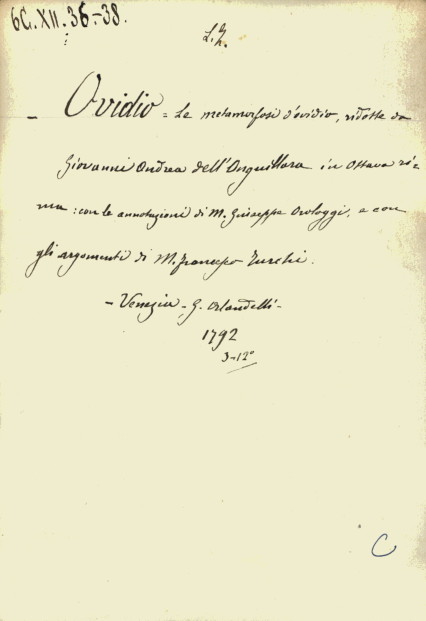 6C.XII.36-38.
L. 2/h.
- Ovidio = Le metamorfosi d'ovidio, ridotte da
Giovanni Andrea dell'Anguillara in Ottava ri=
ma: con le annotazioni di M. Giuseppe Orologgi, e con
gli argomenti di M. Francesco Turchi.
- Venezia - G. Orlandelli -
1792
3-12°
C